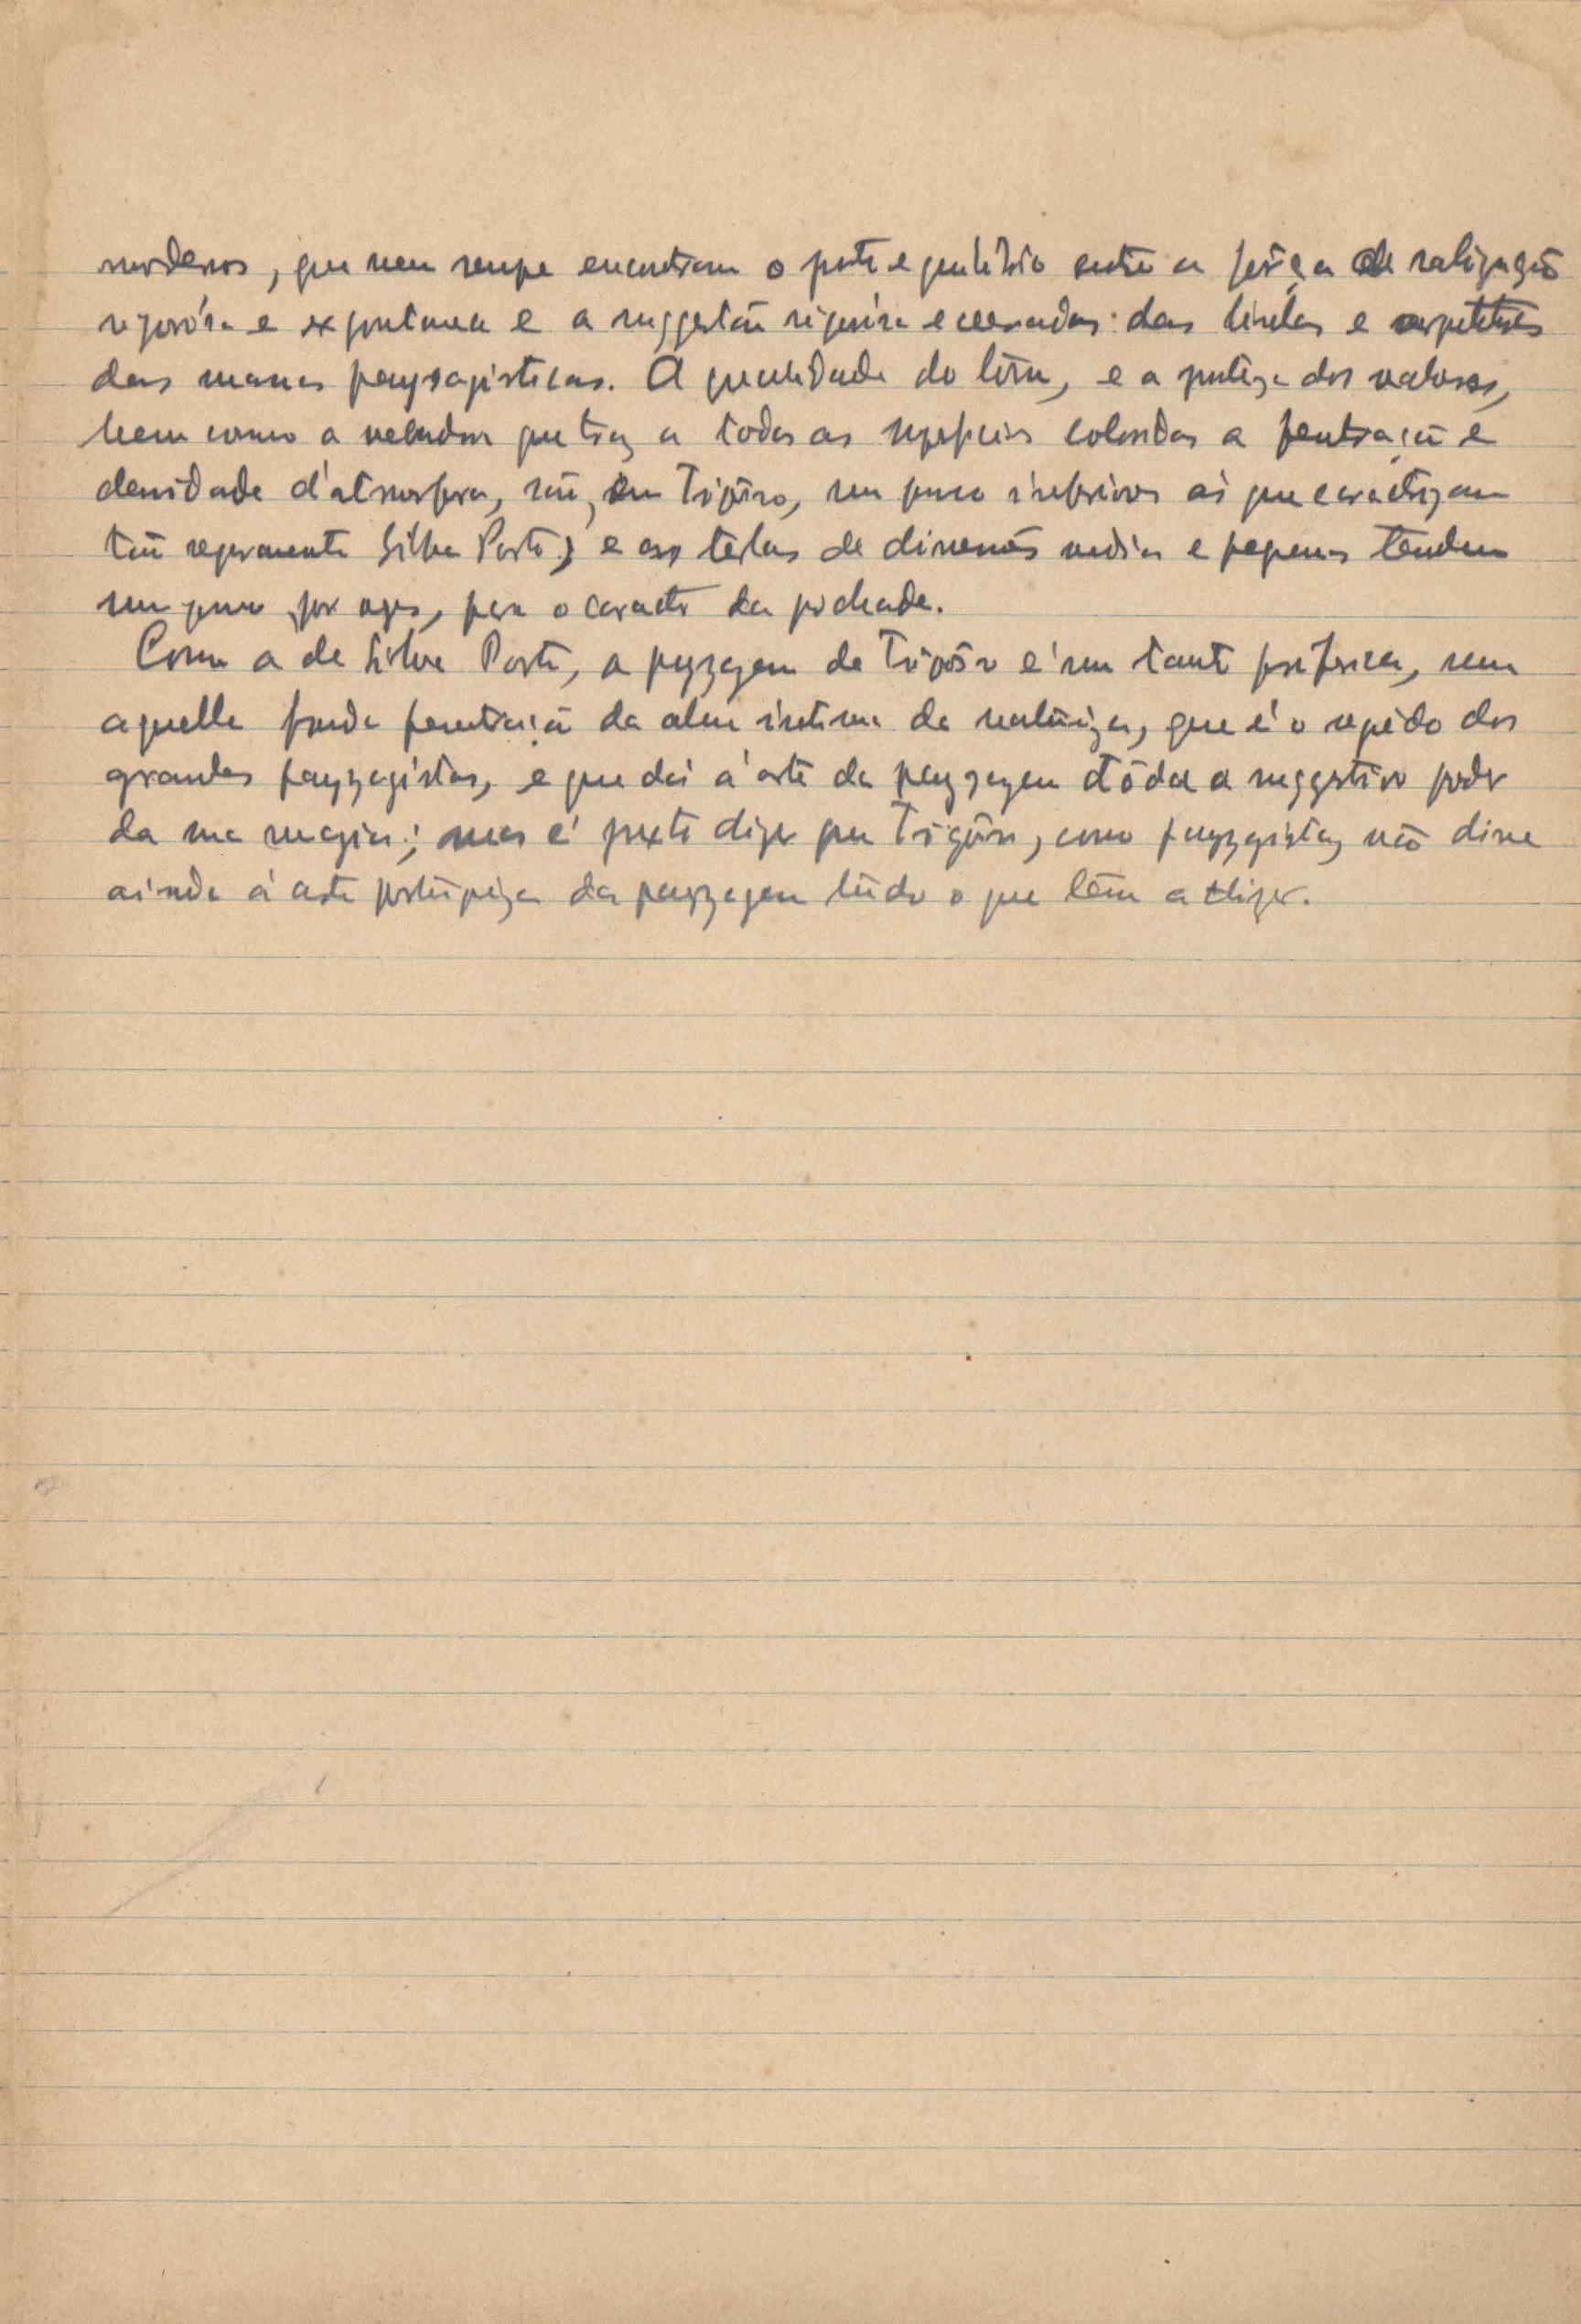 modernos, que nem sempre encontram o justo equilibrio entre a fôrça de realização
vigorósa e expontanea e a suggestão rigorósa e das linhas e
das massas paysagisticas. A qualidade do tom, e a justeza dos valores,
bem como a que traz a todas as superficies coloridas a penetração e
densidade d'atmosfera, são, em Trigôso, um pouco inferiores ás que caracterizam
tão seguramente Silva Porto; e as telas de dimensões medias e pequenas tendem
um pouco, por vezes, para o caracter da pochade.
Como a de Silva Porto, a payzagem de Trigôso é um tanto periferica, sem
aquella funda penetração da alma intima da natureza, que é o segrêdo dos
grandes payzagistas, e que dá á arte da payzagem tôda a suggestivo poder
da sua magia; mas é justo dizer que Trigôso, como payzagista, não disse
ainda á arte portuguêza da payzagem tudo o que têm a dizer.